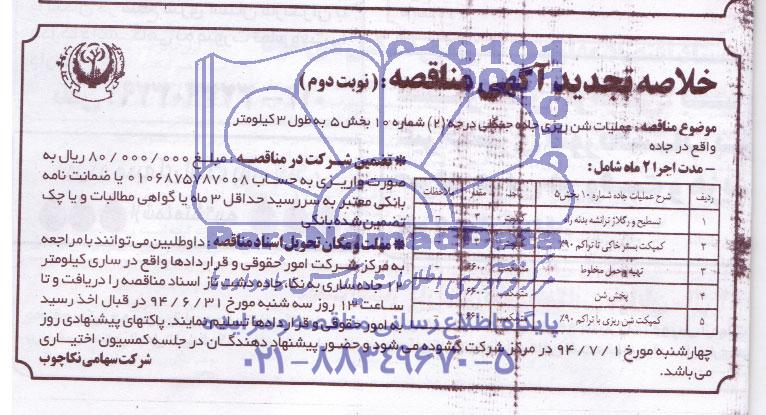 خلاصه تجدید آگهی مناقصه : ( نوبت دوم )
موضوع مناقصه : عملیات شن ریزی جاده جنگلی درجه (۲) شماره ۱۰ بخش ۵ به طول ۳ کیلومتر
واقع در جاده
– مدت اجرا ۲ ماه شامل :
ردیف شرح عملیات جاده شماره ۱۰ بخش ۵ واحد مقدار ملاحظات
۱ تسطیح و رگلاژ ترانشه بدنه راه کیلومتر ۳ –
۲ کمپکت بستر خاکی با تراکم ۹۰٪
۳ تهیه و حمل مخلوط مترمکعب ۶۶۰۰ –
۴ پخش شن مترمکعب ۶۶۰۰ –
۵ کمپکت شن ریزی با تراکم ۹۰٪ مترمکعب
* تضمین شرکت در مناقصه : مبلغ ۸۰/۰۰۰/۰۰۰ ریال به
صورت واریزی به حساب ۰۱۰۶۸۷۵۷۸۷۰۰۸ یا ضمانت نامه
بانکی معتبر به سررسید حداقل ۳ ماه یا گواهی مطالبات و یا چک
تضمین شده بانکی
* مهلت و مکان تحویل اسناد مناقصه : داوطلبین می توانند با مراجعه
به مرکز شرکت امور حقوقی و قراردادها واقع در ساری کیلومتر
۱۲ جاده ساری به نکا، جاده دشت ناز اسناد مناقصه را دریافت و تا
ساعت ۱۳ روز سه شنبه مورخ ۹۴/۶/۳۱ در قبال اخذ رسید
به امور حقوقی و قراردادها تسلیم نمایند. پاکتهای پیشنهادی روز
چهارشنبه مورخ ۹۴/۷/۱ در مرکز شرکت گشوده می شود و حضور پیشنهاد دهندگان در جلسه کمسیون اختیاری
می باشد.
شرکت سهامی نکاچوب
ParsNamadData
پایگاه اطلاع رسانی مناقصه و مزایده
۰۲۱-۸۸۳۴۹۶۷۰-۵